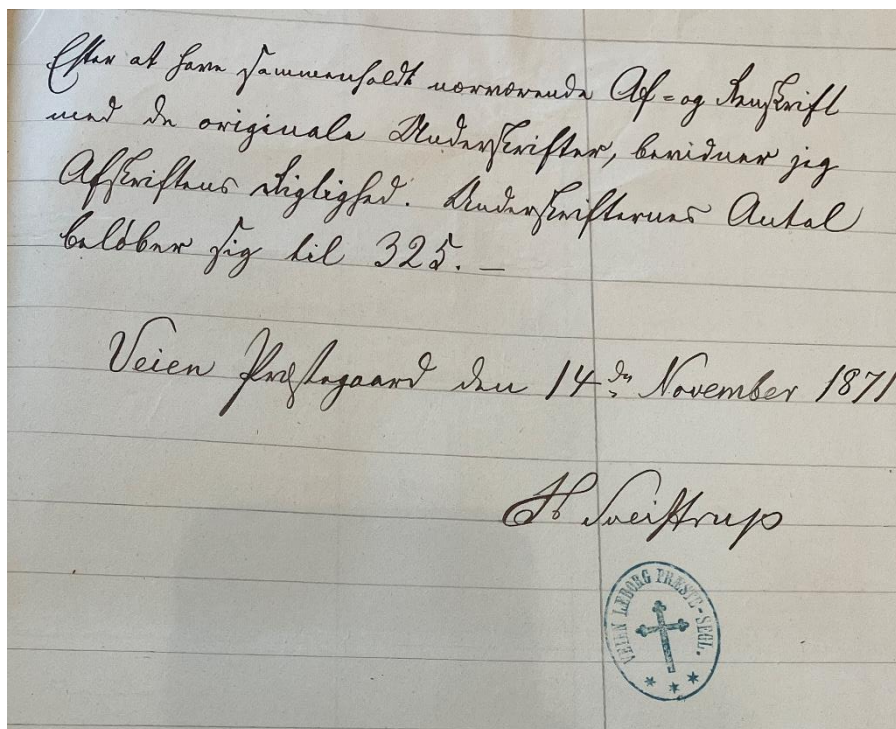 Efter at have sammenholdt nærværende Af- og Renskrift
med de originale Underskrifter, bevidner jeg
Afskriftens Rigtighed. Underskrifternes Antal
beløber sig til 325. —
Veien Præstegaard den 14de November 1871
Sveistrup
VEIEN LÆBORG PRÆSTE-SEGL.